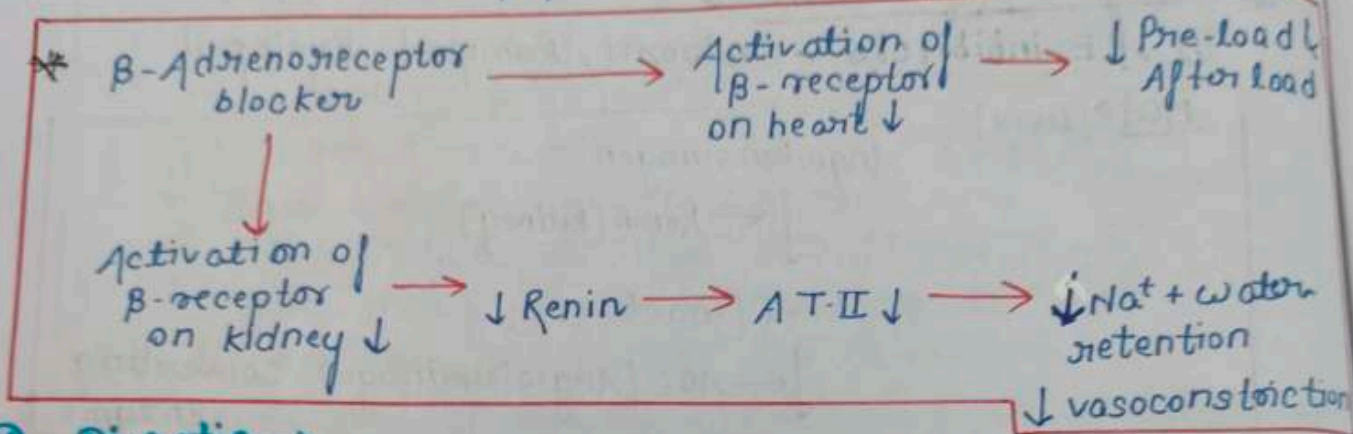 * β-Adrenoreceptor
blocker
Activation of
β-receptor
on heart ↓
↓ Pre-load ↓
After load
Activation of
β-receptor
on kidney ↓
↓ Renin
AT-II ↓
↓ Na⁺ + water
retention
↓ vasoconstriction